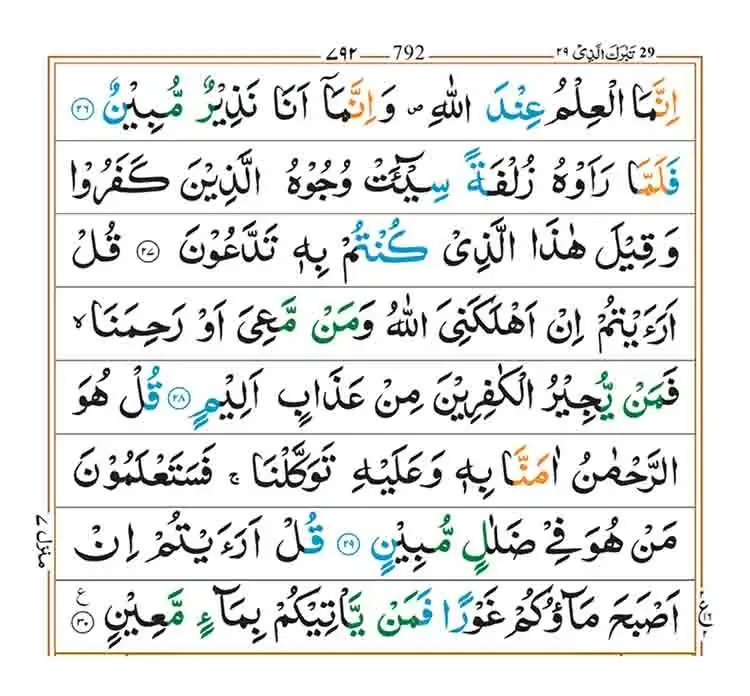 ٧٩٢ 792 29 تَبٰرَكَ الَّذِىْ ٢٩
اِنَّمَا الْعِلْمُ عِنْدَ اللّٰهِ ۪ وَاِنَّمَاۤ اَنَا نَذِيْرٌ مُّبِيْنٌ ۝٢٦
فَلَمَّا رَاَوْهُ زُلْفَةً سِيْٓئَتْ وُجُوْهُ الَّذِيْنَ كَفَرُوْا
وَقِيْلَ هٰذَا الَّذِىْ كُنْتُمْ بِهٖ تَدَّعُوْنَ ۝٢٧ قُلْ
اَرَءَيْتُمْ اِنْ اَهْلَكَنِىَ اللّٰهُ وَمَنْ مَّعِىَ اَوْ رَحِمَنَا ۙ
فَمَنْ يُّجِيْرُ الْكٰفِرِيْنَ مِنْ عَذَابٍ اَلِيْمٍ ۝٢٨ قُلْ هُوَ
الرَّحْمٰنُ اٰمَنَّا بِهٖ وَعَلَيْهِ تَوَكَّلْنَا ۚ فَسَتَعْلَمُوْنَ
مَنْ هُوَ فِىْ ضَلٰلٍ مُّبِيْنٍ ۝٢٩ قُلْ اَرَءَيْتُمْ اِنْ
اَصْبَحَ مَآؤُكُمْ غَوْرًا فَمَنْ يَّاْتِيْكُمْ بِمَآءٍ مَّعِيْنٍ ۝٣٠ ع
منزل ٧
ع